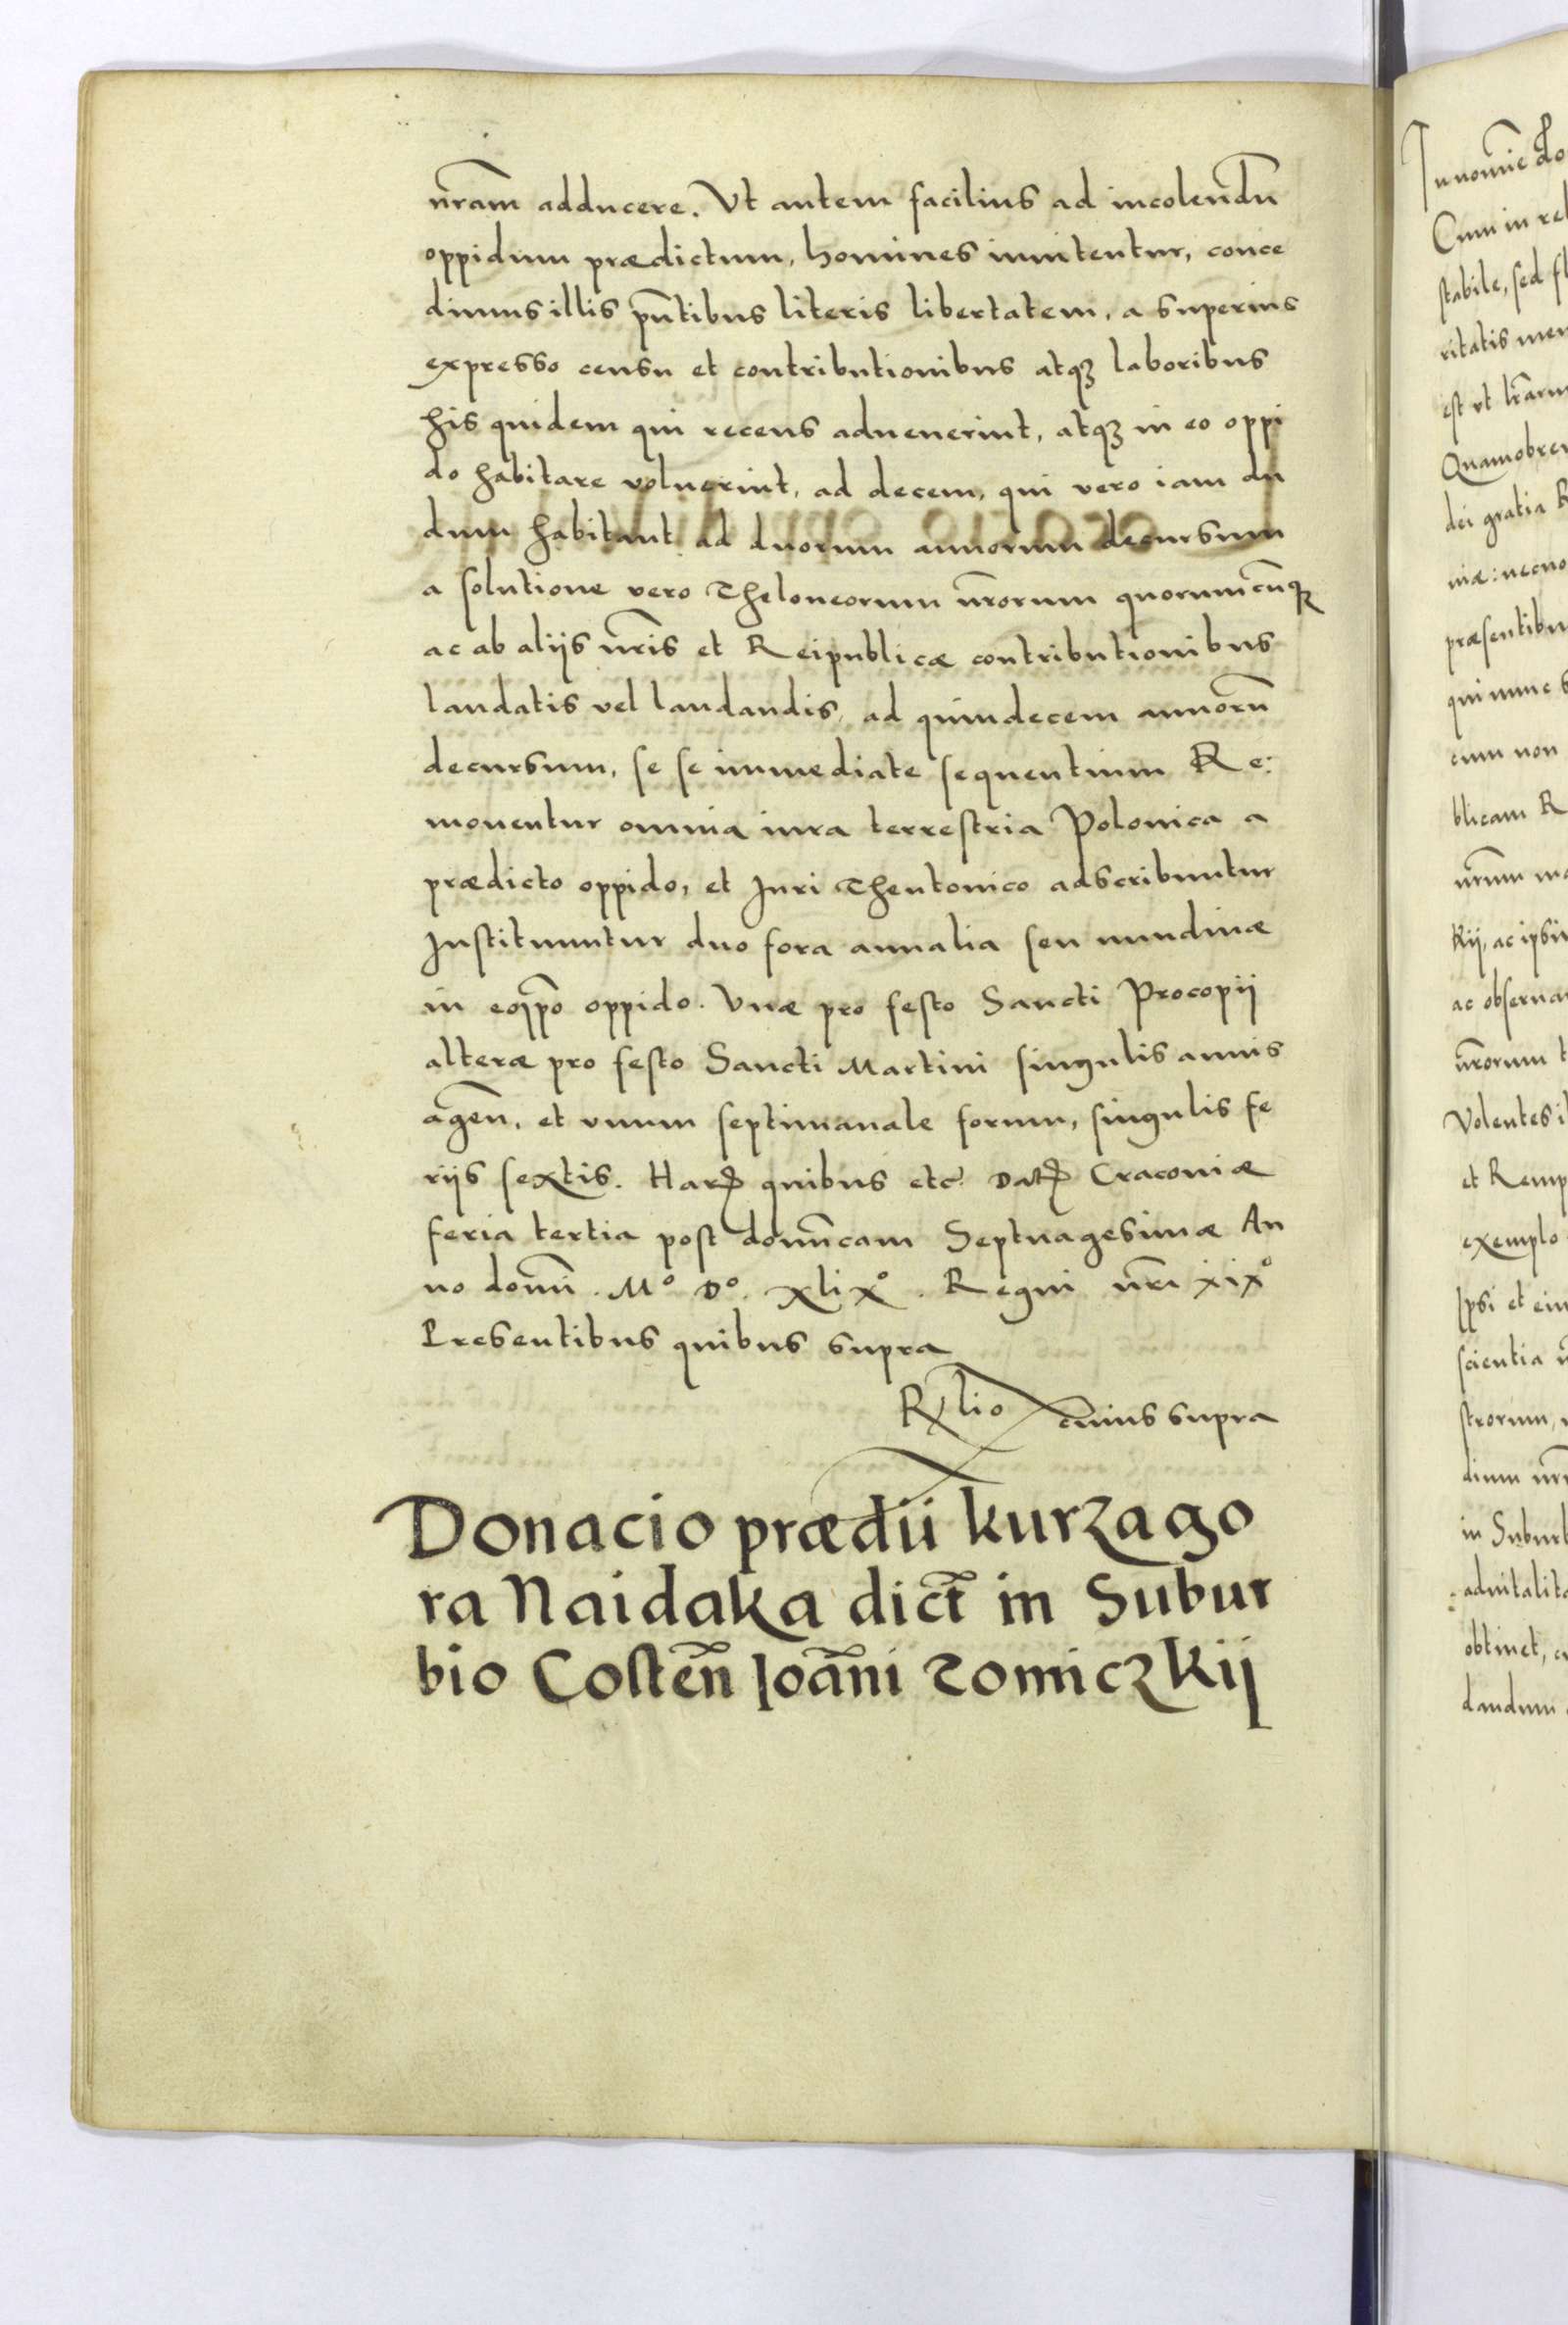 nr̃am adducere. Vt autem facilius ad incolendũ
oppidum prædictum, homines inuitentur, conce
dimus illis pñtibus literis libertatem, a superius
expresso censu et contributionibus atqꝫ laboribus
his quidem qui recens aduenerint, atqꝫ in eo oppi
do habitare voluerint, ad decem, qui vero iam du
dum habitant ad duorum annorum decursum
a solutione vero Theloneorum nr̃orum quorumcũqꝫ
ac ab aliis nr̃is et Reipublicæ contributionibus
laudatis vel laudandis, ad quindecem annorũ
decursum, se se immediate sequentium Re:
mouentur omnia iura terrestria Polonica a
prædicto oppido, et Juri Theutonico adscribuntur
Instituuntur duo fora annalia seu nundinæ
in eoip̃o oppido. Vnæ pro festo Sancti Procopii
alteræ pro festo Sancti Martini singulis annis
ageñ, et vnum septimanale forum, singulis fe
riis sextis. Harꝝ quibus etc. Datꝝ Cracouiæ
feria tertia post domĩcam Septuagesimæ An
no domĩ. Mº Dº. xlixº. Regni nr̃i xixº
Presentibus quibus supra
Rlio cuius supra
Donacio prædii kurzago
ra Naidaka dict̃ in Subur
bio Costeñ Ioãni Tomiczkij
In nomĩe do
Cum in re
stabile, sed fl
ritatis mem
est vt lr̃arum
Quamobrem
dei gratia R
niæ: necno
præsentibu
qui nunc s
cum non
blicam R
nr̃um ma
kij, ac ipsiu
ac obserua
nr̃orum t
Volentes i
et Remp
exemplo
Ipsi et eiu
scientia n
strorum,
dium nr̃
in Suburb
aduitalita
obtinet, c
dandum